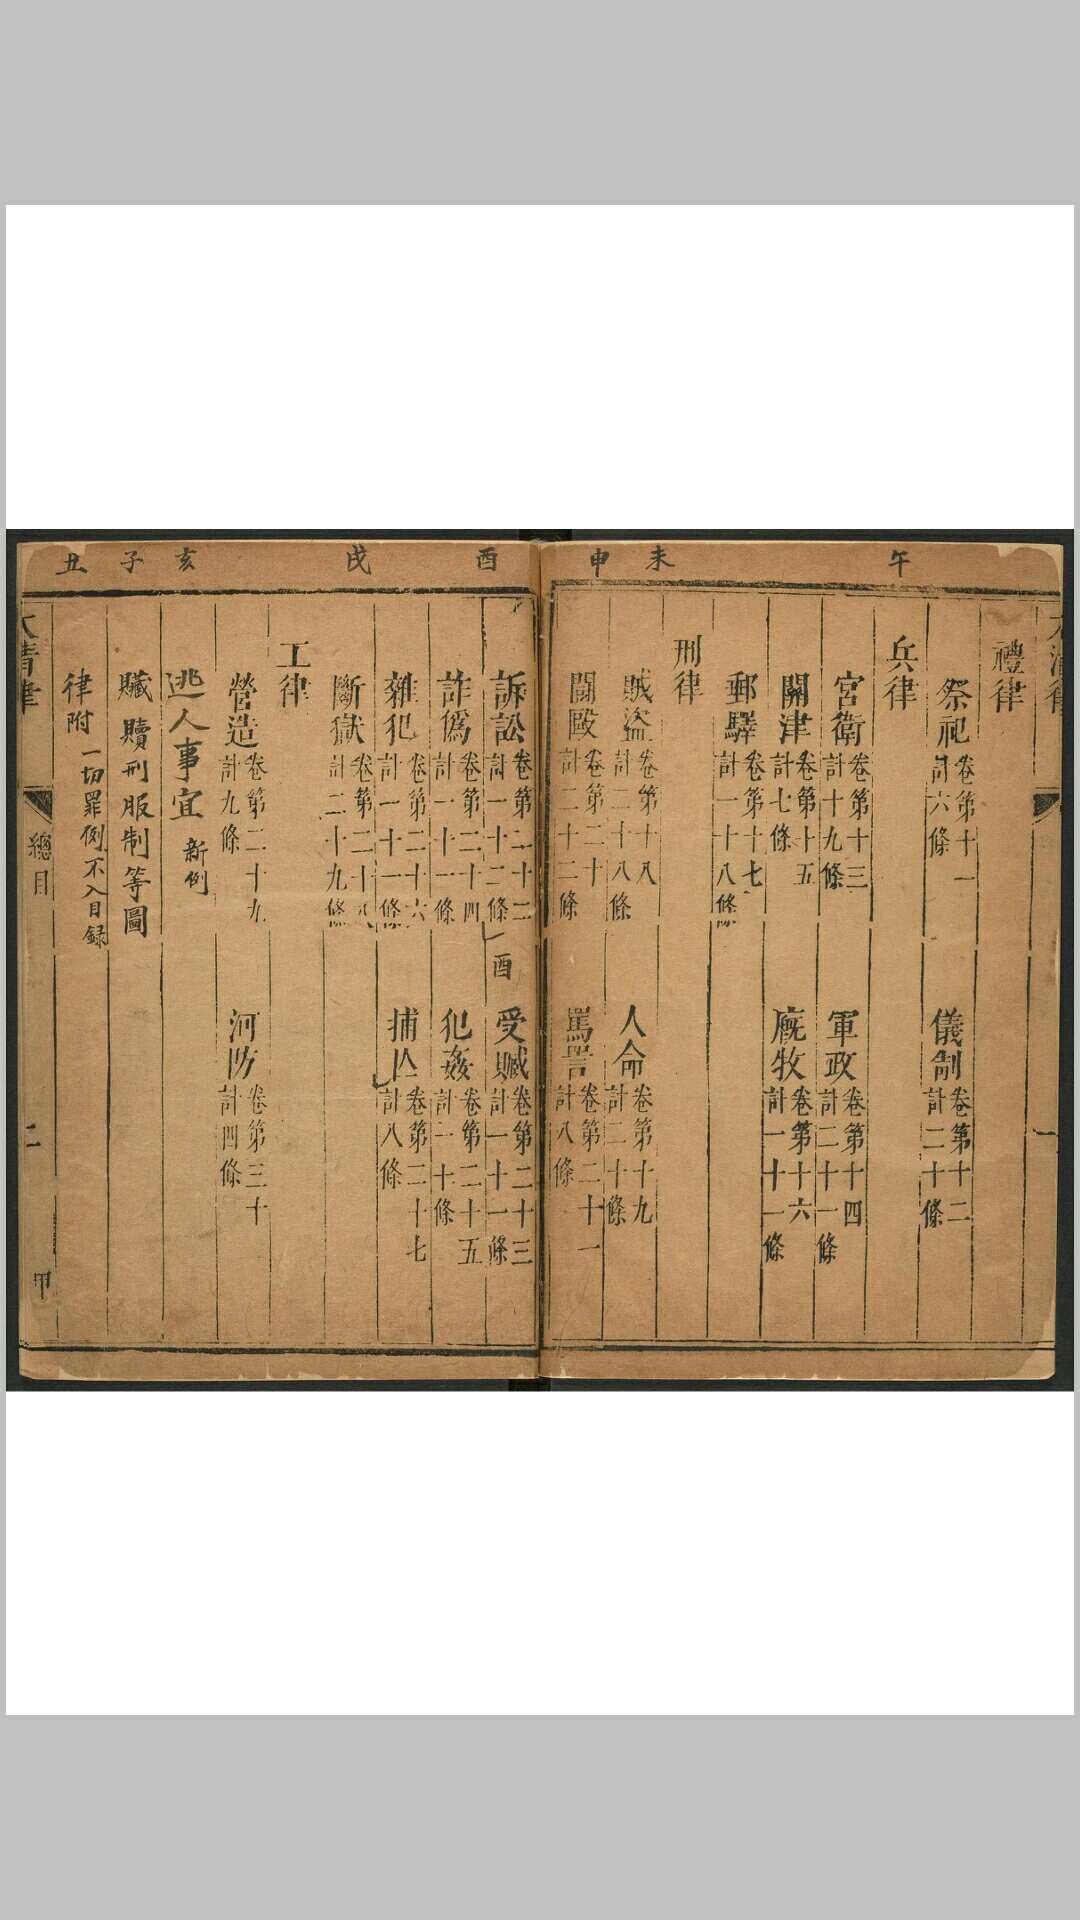 午
未
申
大清律
一
禮律
祭祀 卷第十一 計六條
儀制 卷第十二 計二十條
兵律
宮衛 卷第十三 計十九條
軍政 卷第十四 計二十一條
關津 卷第十五 計七條
廐牧 卷第十六 計一十一條
郵驛 卷第十七 計一十八條
刑律
賊盜 卷第十八 計二十八條
人命 卷第十九 計二十條
鬭毆 卷第二十 計二十二條
罵詈 卷第二十一 計八條
酉
戌
亥
子
丑
訴訟 卷第二十二 計一十二條
酉
受贓 卷第二十三 計一十一條
詐僞 卷第二十四 計一十一條
犯姦 卷第二十五 計一十條
雜犯 卷第二十六 計一十一條
捕亡 卷第二十七 計八條
斷獄 卷第二十八 計二十九條
工律
營造 卷第二十九 計九條
河防 卷第三十 計四條
逃人事宜 新例
贓贖刑服制等圖
律附 一切罪例不入目録
大清律
總目
二
甲